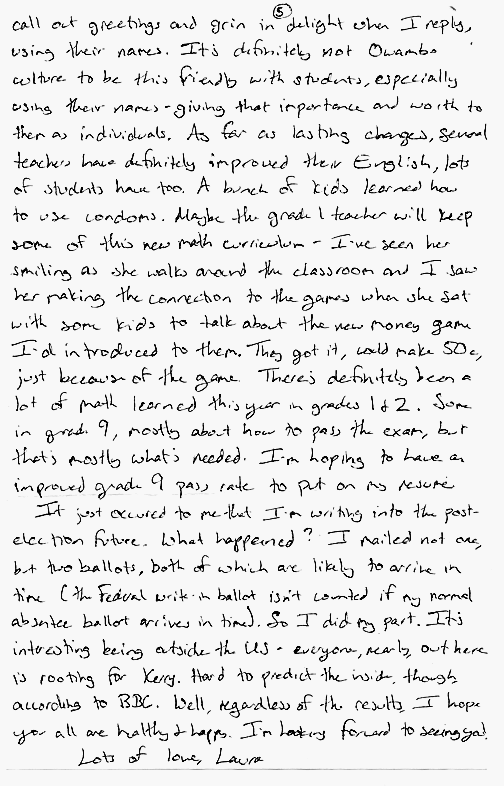 5
call out greetings and grin in delight when I reply,
using their names. It's definitely not Owambo
culture to be this friendly with students, especially
using their names - giving that importance and worth to
them as individuals. As far as lasting changes, several
teachers have definitely improved their English, lots
of students have too. A bunch of kids learned how
to use condoms. Maybe the grade 1 teacher will keep
some of this new math curriculum - I've seen her
smiling as she walks around the classroom and I saw
her making the connection to the games when she sat
with some kids to talk about the new money game
I'd introduced to them. They got it, could make 50c,
just because of the game. There's definitely been a
lot of math learned this year in grades 1 & 2. Some
in grade 9, mostly about how to pass the exam, but
that's mostly what's needed. I'm hoping to have an
improved grade 9 pass rate to put on my resume
It just occured to me that I'm writing into the post-
election future. What happened? I mailed not one,
but two ballots, both of which are likely to arrive in
time (the Federal write-in ballot isn't counted if my normal
absentee ballot arrives in time). So I did my part. It's
interesting being outside the US - everyone, nearly, out here
is rooting for Kerry. Hard to predict the inside, though,
according to BBC. Well, regardless of the results, I hope
you all are healthy & happy. I'm looking forward to seeing ya!
Lots of love, Laura